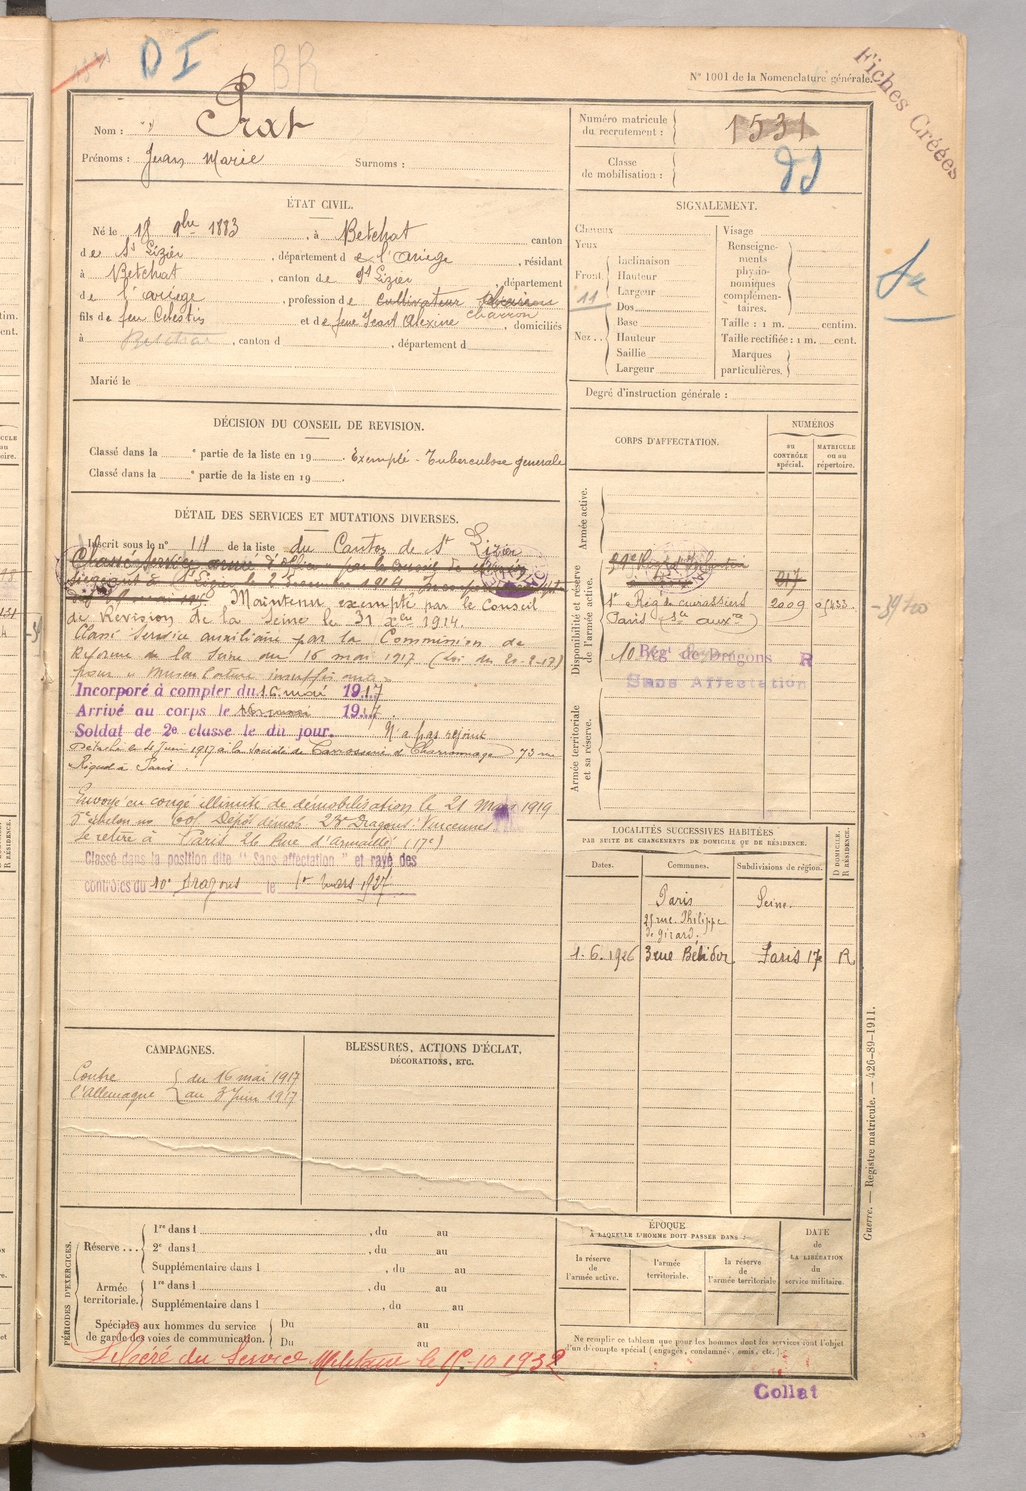 D I
BR
N° 1001 de la Nomenclature générale.
Fiches Créées
Nom : Prat
Prénoms : Jean Marie Surnoms :
Numéro matricule du recrutement : 1531
Classe de mobilisation :
ÉTAT CIVIL.
Né le 18 9bre 1883, à Betchat canton
de St Lizier, département de l'Ariège, résidant
à Betchat, canton de St Lizier département
de l'ariège, profession de cultivateur
charron
fils de feu Célestin et de feue Alexine, domiciliés
à Betchat, canton d , département d
Marié le
SIGNALEMENT.
Cheveux
Yeux
Front.
Inclinaison
Hauteur
Largeur
11
Nez..
Dos
Base
Hauteur
Saillie
Largeur
Visage
Renseigne-
ments
physio-
nomiques
complémen-
taires.
Taille : 1 m. centim.
Taille rectifiée : 1 m. cent.
Marques
particulières.
Degré d'instruction générale :
DÉCISION DU CONSEIL DE REVISION.
Classé dans la ° partie de la liste en 19 . Exempté - Tuberculose generale
Classé dans la ° partie de la liste en 19 .
CORPS D'AFFECTATION.
NUMÉROS
au CONTRÔLE spécial.
MATRICULE ou au répertoire.
Armée active.
Disponibilité et réserve de l'armée active.
Armée territoriale et sa réserve.
217
1er Rég. de cuirassiers 2009
Paris
10 Régt de Dragons R
Sans Affectation
DÉTAIL DES SERVICES ET MUTATIONS DIVERSES.
Inscrit sous le n° 111 de la liste du Canton de St Lizier
Classé Service armé
Maintenu exempté par le Conseil
de Révision de la Seine le 31 Xbre 1914.
Classé Service auxiliaire par la Commission de
Réforme de la Seine du 16 mai 1917 (Loi du 20-2-17)
pour " Musculature insuffisante "
Incorporé à compter du 16 mai 1917
Arrivé au corps le 1917.
Soldat de 2e classe le dit jour. N'a pas rejoint
Détaché le 4 Juin 1917 à la Société de Carrosserie et Charronnage 73 rue
à Paris.
Envoyé en congé illimité de démobilisation le 21 Mars 1919
Dépôt démob 23e Dragons Vincennes
Se retire à Paris 26 Rue d'Armaillé (17e)
Classé dans la position dite " Sans affectation " et rayé des
contrôles du 10e Dragons le 1er mars 1927
LOCALITÉS SUCCESSIVES HABITÉES
PAR SUITE DE CHANGEMENTS DE DOMICILE OU DE RÉSIDENCE.
Dates. Communes. Subdivisions de région. D DOMICILE. R RÉSIDENCE.
Paris Seine.
rue Philippe
de Girard.
1.6.1926 3 rue Bélidor Paris 17e R
CAMPAGNES.
Contre l'Allemagne
du 16 mai 1917
au 3 Juin 1917
BLESSURES, ACTIONS D'ÉCLAT,
DÉCORATIONS, ETC.
PÉRIODES D'EXERCICES.
Réserve ...
1re dans l , du au
2e dans l , du au
Supplémentaire dans l , du au
Armée territoriale.
1re dans l , du au
Supplémentaire dans l , du au
Spéciales aux hommes du service de garde des voies de communication.
Du au
Du au
Libéré du Service Militaire le 15-10 1932
ÉPOQUE
À LAQUELLE L'HOMME DOIT PASSER DANS :
la réserve de l'armée active.
l'armée territoriale.
la réserve de l'armée territoriale
DATE de LA LIBÉRATION du service militaire.
Ne remplir ce tableau que pour les hommes dont les services font l'objet
d'un décompte spécial (engagés, condamnés, omis, etc.).
Collat
Guerre. — Registre matricule. — 426-89-1911.